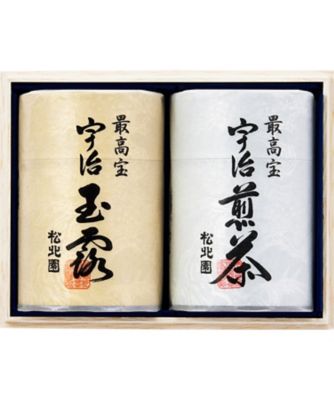 最高宝
宇治煎茶
松北園
最高宝
宇治玉露
松北園